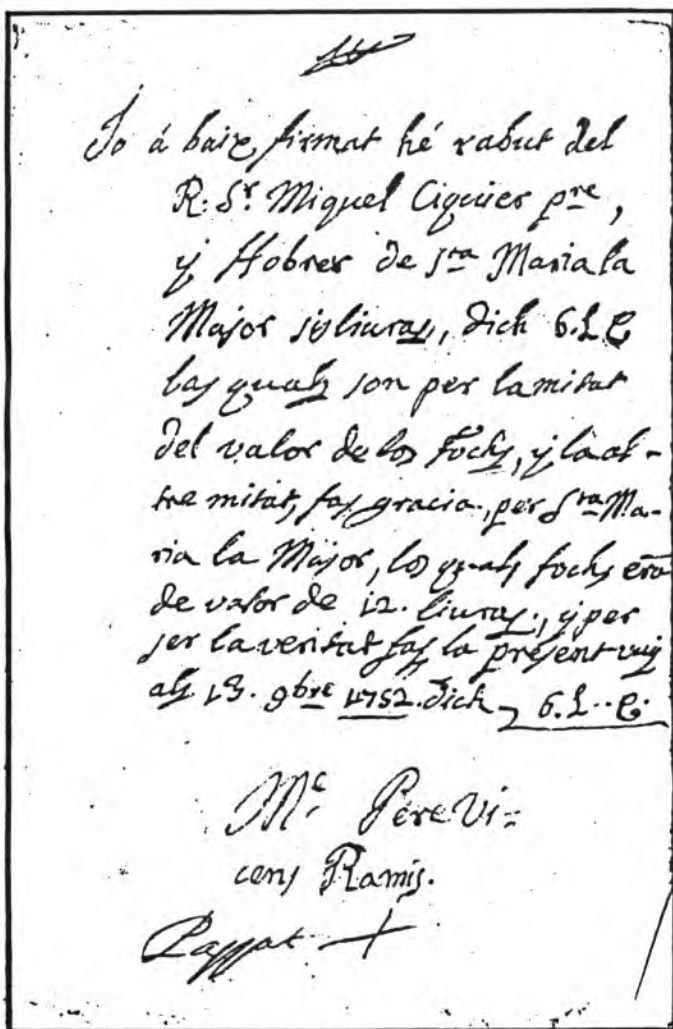 Jo á baix firmat hé rabut del
R: Sr. Miquel Ciquier pre,
y Hobrer de Sta Maria la
Major sis liuras, dich 6. L
las quals son per la mitat
del valor de los fochs, y la al-
tre mitat, fas gracia, per Sta Ma-
ria la Major, los quals fochs erã
de valor de 12. liuras, y per
ser la veritat fas la present vuy
als 13. 9bre 1752. dich 6. L
Me. Pere Vi=
cens Ramis.
Passat